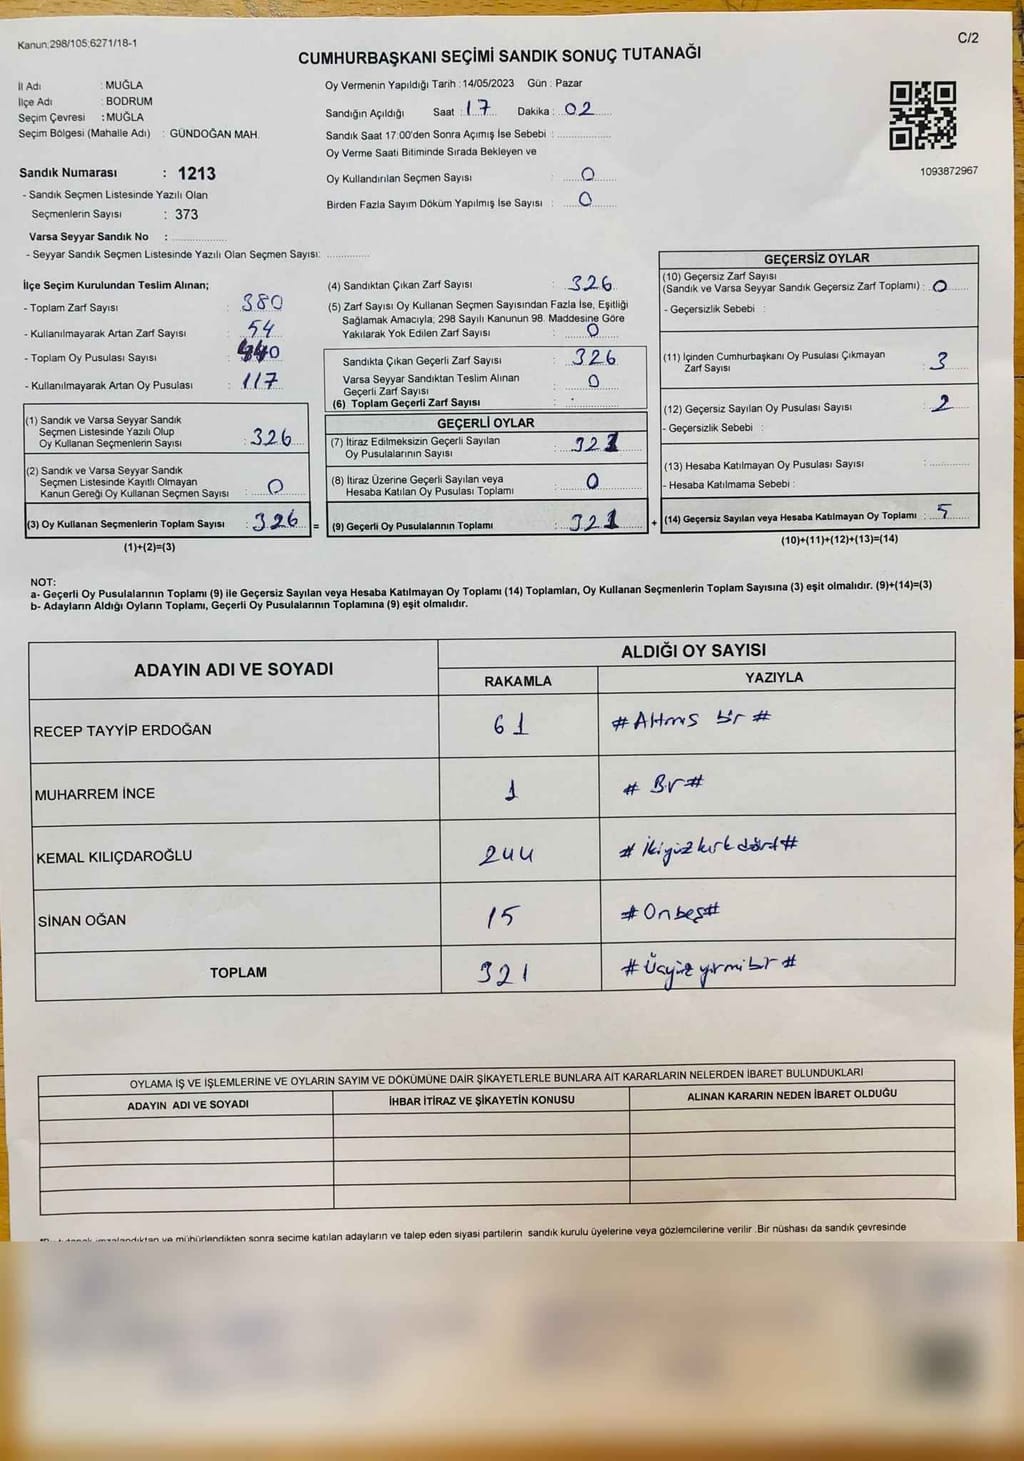 Kanun;298/105;6271/18-1
C/2
CUMHURBAŞKANI SEÇİMİ SANDIK SONUÇ TUTANAĞI
İl Adı : MUĞLA
İlçe Adı : BODRUM
Seçim Çevresi : MUĞLA
Seçim Bölgesi (Mahalle Adı) : GÜNDOĞAN MAH.
Sandık Numarası : 1213
- Sandık Seçmen Listesinde Yazılı Olan
Seçmenlerin Sayısı : 373
Varsa Seyyar Sandık No :
- Seyyar Sandık Seçmen Listesinde Yazılı Olan Seçmen Sayısı:
Oy Vermenin Yapıldığı Tarih : 14/05/2023 Gün : Pazar
Sandığın Açıldığı Saat : 17 Dakika : 02
Sandık Saat 17:00'den Sonra Açımış İse Sebebi :
Oy Verme Saati Bitiminde Sırada Bekleyen ve
Oy Kullandırılan Seçmen Sayısı : 0
Birden Fazla Sayım Döküm Yapılmış İse Sayısı : 0
1093872967
İlçe Seçim Kurulundan Teslim Alınan;
- Toplam Zarf Sayısı : 380
- Kullanılmayarak Artan Zarf Sayısı : 54
- Toplam Oy Pusulası Sayısı : 440
- Kullanılmayarak Artan Oy Pusulası : 117
(1) Sandık ve Varsa Seyyar Sandık
Seçmen Listesinde Yazılı Olup
Oy Kullanan Seçmenlerin Sayısı : 326
(2) Sandık ve Varsa Seyyar Sandık
Seçmen Listesinde Kayıtlı Olmayan
Kanun Gereği Oy Kullanan Seçmen Sayısı : 0
(3) Oy Kullanan Seçmenlerin Toplam Sayısı : 326 =
(1)+(2)=(3)
(4) Sandıktan Çıkan Zarf Sayısı : 326
(5) Zarf Sayısı Oy Kullanan Seçmen Sayısından Fazla İse, Eşitliği
Sağlamak Amacıyla, 298 Sayılı Kanunun 98. Maddesine Göre
Yakılarak Yok Edilen Zarf Sayısı : 0
Sandıkta Çıkan Geçerli Zarf Sayısı : 326
Varsa Seyyar Sandıktan Teslim Alınan
Geçerli Zarf Sayısı : 0
(6) Toplam Geçerli Zarf Sayısı :
GEÇERLİ OYLAR
(7) İtiraz Edilmeksizin Geçerli Sayılan
Oy Pusulalarının Sayısı : 321
(8) İtiraz Üzerine Geçerli Sayılan veya
Hesaba Katılan Oy Pusulası Toplamı : 0
(9) Geçerli Oy Pusulalarının Toplamı : 321 +
GEÇERSİZ OYLAR
(10) Geçersiz Zarf Sayısı
(Sandık ve Varsa Seyyar Sandık Geçersiz Zarf Toplamı) : 0
- Geçersizlik Sebebi :
(11) İçinden Cumhurbaşkanı Oy Pusulası Çıkmayan
Zarf Sayısı : 3
(12) Geçersiz Sayılan Oy Pusulası Sayısı : 2
- Geçersizlik Sebebi :
(13) Hesaba Katılmayan Oy Pusulası Sayısı :
- Hesaba Katılmama Sebebi :
(14) Geçersiz Sayılan veya Hesaba Katılmayan Oy Toplamı : 5
(10)+(11)+(12)+(13)=(14)
NOT:
a- Geçerli Oy Pusulalarının Toplamı (9) ile Geçersiz Sayılan veya Hesaba Katılmayan Oy Toplamı (14) Toplamları, Oy Kullanan Seçmenlerin Toplam Sayısına (3) eşit olmalıdır. (9)+(14)=(3)
b- Adayların Aldığı Oyların Toplamı, Geçerli Oy Pusulalarının Toplamına (9) eşit olmalıdır.
ADAYIN ADI VE SOYADI ALDIĞI OY SAYISI
RAKAMLA YAZIYLA
RECEP TAYYİP ERDOĞAN 61 # Altmış bir #
MUHARREM İNCE 1 # Bir #
KEMAL KILIÇDAROĞLU 244 # İkiyüzkırkdört #
SİNAN OĞAN 15 # Onbeş #
TOPLAM 321 # Üçyüzyirmibir #
OYLAMA İŞ VE İŞLEMLERİNE VE OYLARIN SAYIM VE DÖKÜMÜNE DAİR ŞİKAYETLERLE BUNLARA AİT KARARLARIN NELERDEN İBARET BULUNDUKLARI
ADAYIN ADI VE SOYADI İHBAR İTİRAZ VE ŞİKAYETİN KONUSU ALINAN KARARIN NEDEN İBARET OLDUĞU
imzalandıktan ve mühürlendikten sonra seçime katılan adayların ve talep eden siyasi partilerin sandık kurulu üyelerine veya gözlemcilerine verilir .Bir nüshası da sandık çevresinde